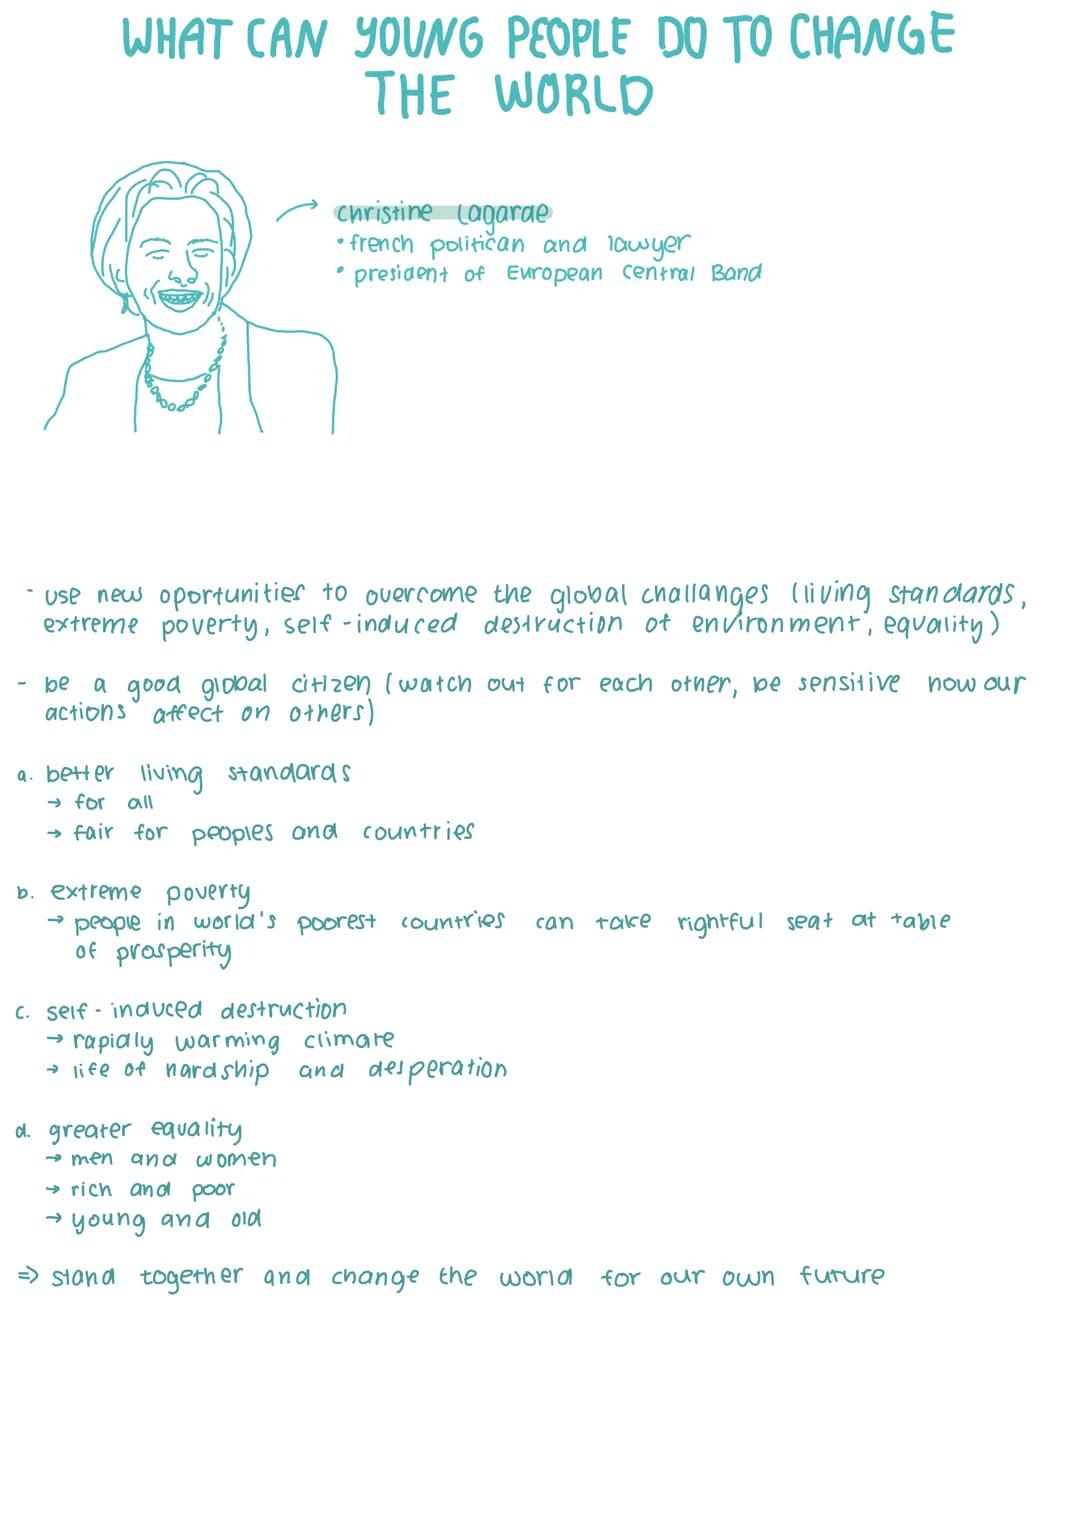 WHAT CAN YOUNG PEOPLE DO TO CHANGE
THE WORLD
christine Lagarde
• french politican and lawyer
• president of European Central Band
- use new oportunities to overcome the global challanges (living standards,
extreme poverty, self-induced destruction of environment, equality)
- be a good global citizen (watch out for each other, be sensitive how our
actions affect on others)
a. better living standards
→ for all
→ fair for peoples and countries
b. extreme poverty
→ people in world's poorest countries can take rightful seat at table
of prosperity
c. self-induced destruction
→ rapidly warming climate
→ life of hardship and desperation
d. greater equality
→ men and women
→ rich and poor
→ young and old
⇒ stand together and change the world for our own future